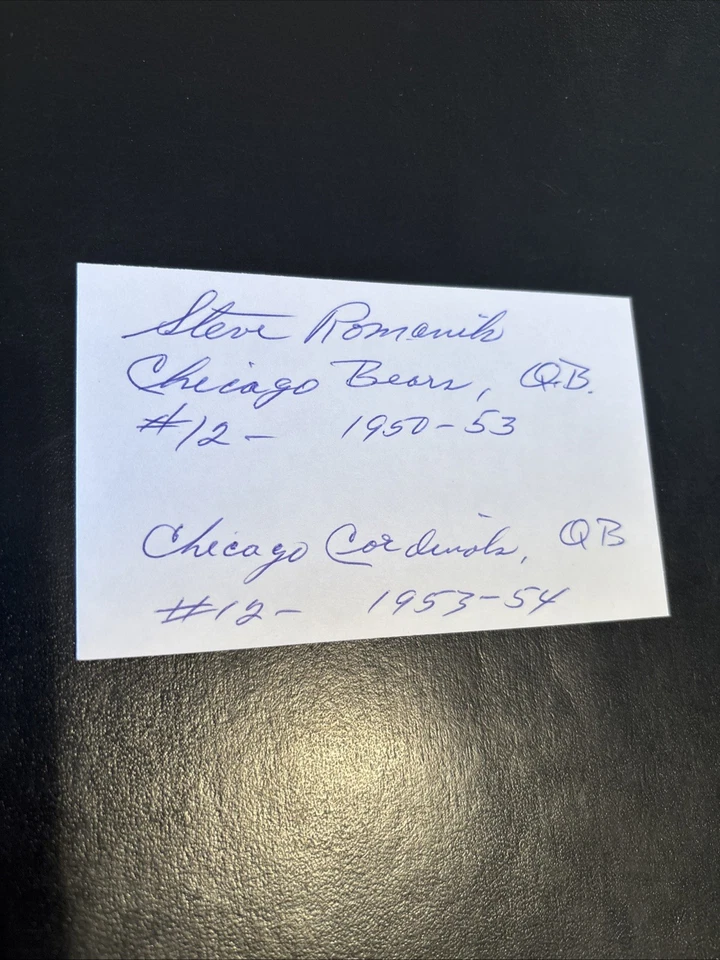 Steve Romanik
Chicago Bears, Q.B.
#12- 1950-53
Chicago Cardinals, QB
#12- 1953-54